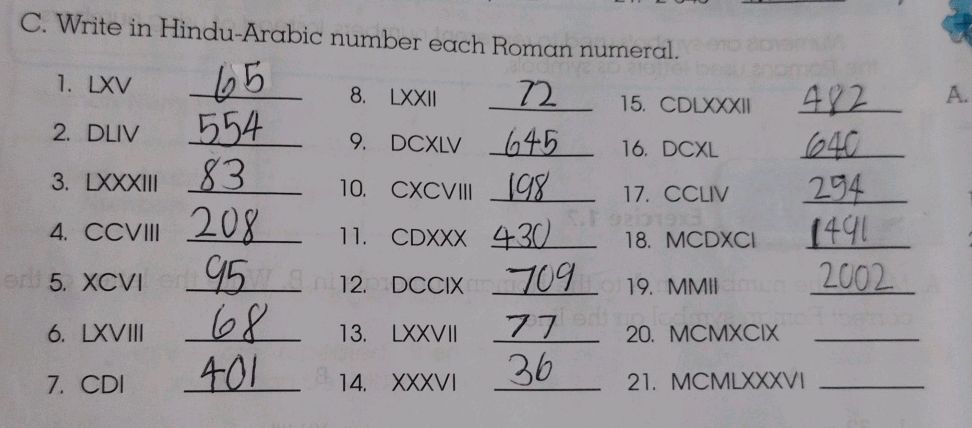 C. Write in Hindu-Arabic number each Roman numeral.
1. LXV 65
2. DLIV 554
3. LXXXIII 83
4. CCVIII 208
5. XCVI 95
6. LXVIII 68
7. CDI 401
8. LXXII 72
9. DCXLV 645
10. CXCVIII 198
11. CDXXX 430
12. DCCIX 709
13. LXXVII 77
14. XXXVI 36
15. CDLXXXII 482
16. DCXL 640
17. CCLIV 254
18. MCDXCI 1491
19. MMII 2002
20. MCMXCIX
21. MCMLXXXVI
A.